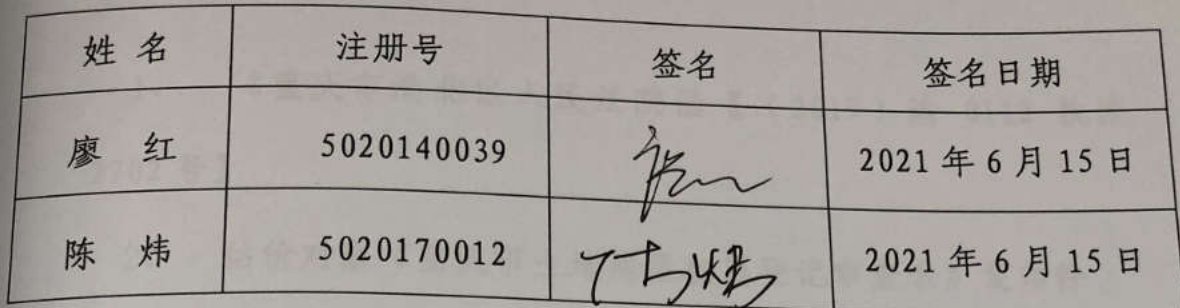 姓 名 注册号 签名 签名日期
廖 红 5020140039 2021 年 6 月 15 日
陈 炜 5020170012 陈炜 2021 年 6 月 15 日